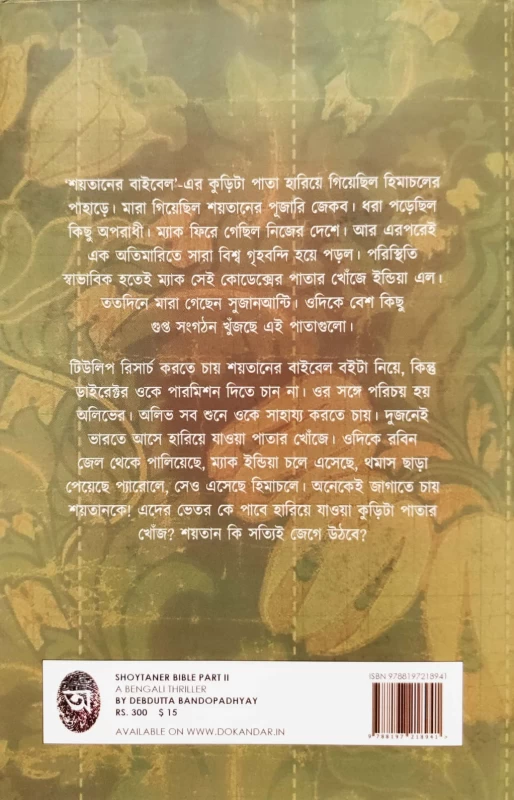 'শয়তানের বাইবেল'-এর কুড়িটা পাতা হারিয়ে গিয়েছিল হিমাচলের
পাহাড়ে। মারা গিয়েছিল শয়তানের পূজারি জেকব। ধরা পড়েছিল
কিছু অপরাধী। ম্যাক ফিরে গেছিল নিজের দেশে। আর এরপরেই
এক অতিমারিতে সারা বিশ্ব গৃহবন্দি হয়ে পড়ল। পরিস্থিতি
স্বাভাবিক হতেই ম্যাক সেই কোডেক্সের পাতার খোঁজে ইন্ডিয়া এল।
ততদিনে মারা গেছেন সুজানআন্টি। ওদিকে বেশ কিছু
গুপ্ত সংগঠন খুঁজছে এই পাতাগুলো।
টিউলিপ রিসার্চ করতে চায় শয়তানের বাইবেল বইটা নিয়ে, কিন্তু
ডাইরেক্টর ওকে পারমিশন দিতে চান না। ওর সঙ্গে পরিচয় হয়
অলিভের। অলিভ সব শুনে ওকে সাহায্য করতে চায়। দুজনেই
ভারতে আসে হারিয়ে যাওয়া পাতার খোঁজে। ওদিকে রবিন
জেল থেকে পালিয়েছে, ম্যাক ইন্ডিয়া চলে এসেছে, থমাস ছাড়া
পেয়েছে প্যারোলে, সেও এসেছে হিমাচলে। অনেকেই জাগাতে চায়
শয়তানকে! এদের ভেতর কে পাবে হারিয়ে যাওয়া কুড়িটা পাতার
খোঁজ? শয়তান কি সত্যিই জেগে উঠবে?
অ
SHOYTANER BIBLE PART II
A BENGALI THRILLER
BY DEBDUTTA BANDOPADHYAY
RS. 300 $ 15
AVAILABLE ON WWW.DOKANDAR.IN
ISBN 9788197218941
9 788197 218941 >